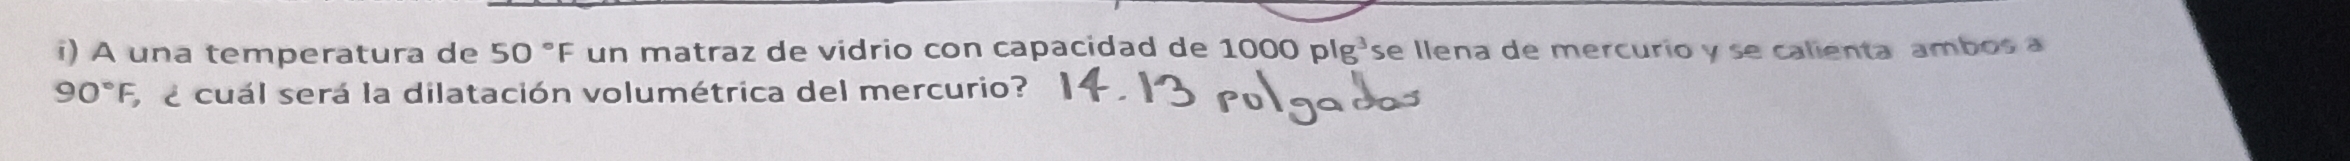 i) A una temperatura de 50 °F un matraz de vidrio con capacidad de 1000 plg³se llena de mercurio y se calienta ambos a
90°F, ¿ cuál será la dilatación volumétrica del mercurio? 14.13 pulgadas